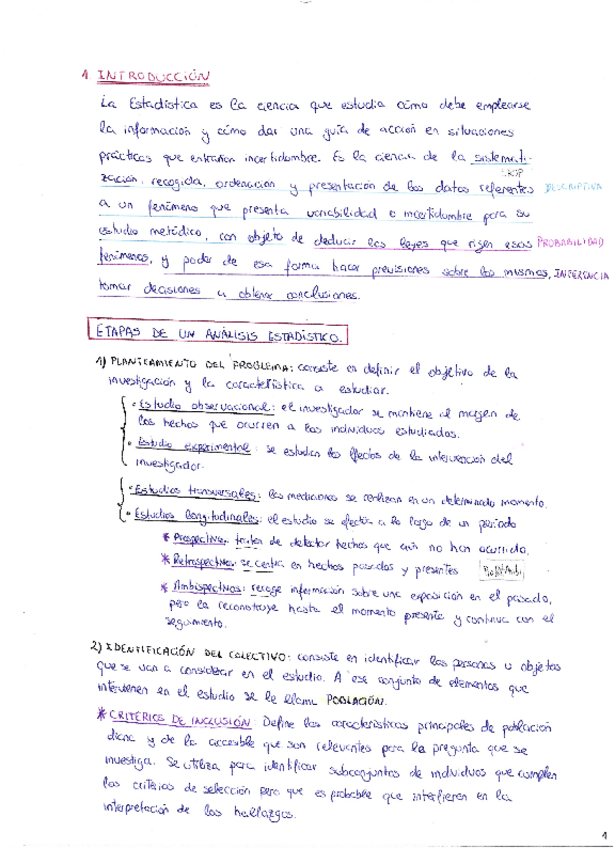 1. INTRODUCCIÓN
La Estadística es la ciencia que estudia cómo debe emplearse
la información y cómo dar una guía de acción en situaciones
prácticas que entrañan incertidumbre. Es la ciencia de la sistemati-
zación, recogida, ordenación y presentación de los datos referentes DESCRIPTIVA
a un fenómeno que presenta variabilidad e incertidumbre para su
estudio metódico, con objeto de deducir las leyes que rigen esos PROBABILIDAD
fenómenos, y poder de esa forma hacer previsiones sobre los mismos, INFERENCIA
tomar decisiones u obtener conclusiones.
ETAPAS DE UN ANÁLISIS ESTADÍSTICO.
1) PLANTEAMIENTO DEL PROBLEMA: consiste en definir el objetivo de la
investigación y la característica a estudiar.
• Estudio observacional: el investigador se mantiene al margen de
los hechos que ocurren a los individuos estudiados.
• Estudio experimental: se estudian los efectos de la intervención del
investigador.
• Estudios transversales: las mediciones se realizan en un determinado momento.
• Estudios longitudinales: el estudio se efectúa a lo largo de un período
* Prospectivos: tratan de detectar hechos que aún no han ocurrido.
* Retrospectivos: se centra en hechos pasados y presentes
* Ambispectivos: recoge información sobre una exposición en el pasado,
pero la reconstruye hasta el momento presente y continua con el
seguimiento.
2) IDENTIFICACIÓN DEL COLECTIVO: consiste en identificar las personas u objetos
que se van a considerar en el estudio. A ese conjunto de elementos que
intervienen en el estudio se le llama POBLACIÓN.
* CRITERIOS DE INCLUSIÓN: Define las características principales de población
diana y de la accesible que son relevantes para la pregunta que se
investiga. Se utiliza para identificar subconjuntos de individuos que cumplen
los criterios de selección pero que es probable que interfieren en la
interpretación de los hallazgos.
1